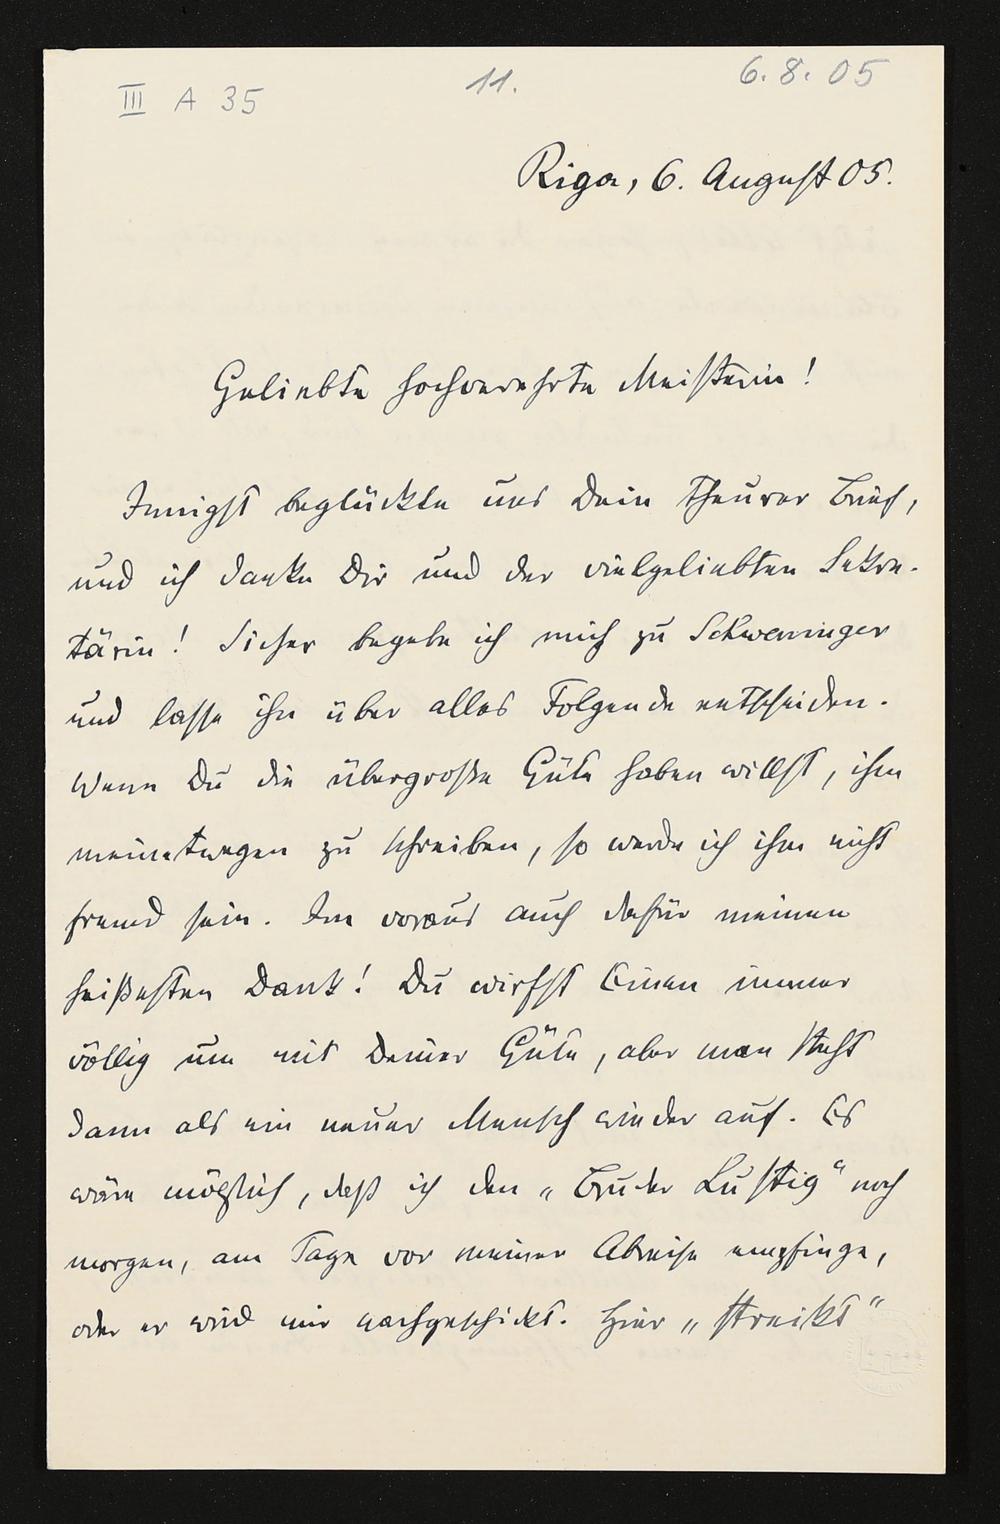 III A 35
11.
6.8.05
Riga, 6. August 05.
Geliebte hochverehrte Meisterin!
Innigst beglückte uns Dein theurer Brief,
und ich danke Dir und der vielgeliebten Sekre-
tärin! Sicher begebe ich mich zu Schweninger
und lasse ihn über alles Folgende entscheiden.
Wenn Du die übergroße Güte haben willst, ihm
meinetwegen zu schreiben, so werde ich ihm nicht
fremd sein. Im voraus auch dafür meinen
heißesten Dank! Du wirfst Einen immer
völlig um mit Deiner Güte, aber man steht
dann als ein neuer Mensch wieder auf. Es
wäre möglich, daß ich den „Bruder Lustig“ noch
morgen, am Tage vor meiner Abreise empfinge,
oder er wird mir nachgeschickt. Hier „streikt“